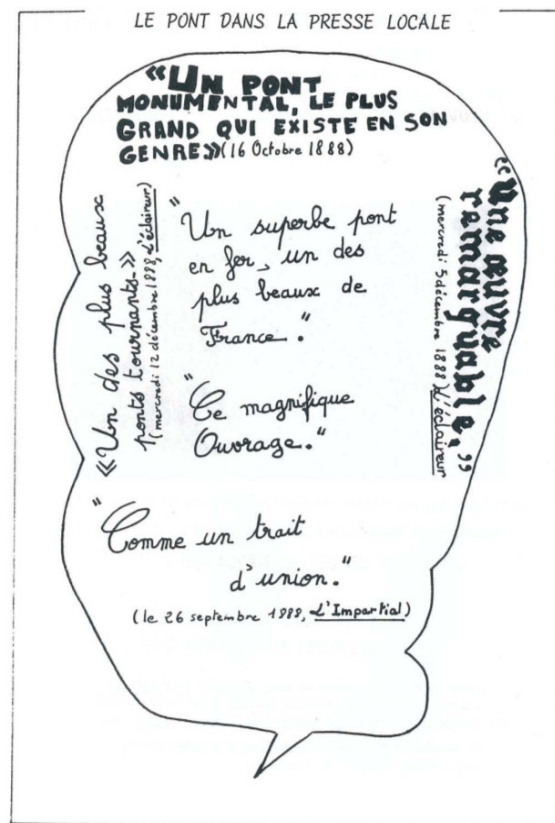 LE PONT DANS LA PRESSE LOCALE
«UN PONT
MONUMENTAL, LE PLUS
GRAND QUI EXISTE EN SON
GENRE» (16 Octobre 1888)
«Un des plus beaux
ponts tournants.»
(mercredi 12 décembre 1888, d'éclaireur)
"Un superbe pont
en fer, un des
plus beaux de
France."
"Ce magnifique
Ouvrage."
"Une œuvre
remarquable."
(mercredi 5 décembre 1888) d'éclaireur
"Comme un trait
d'union."
(le 26 septembre 1888, L'Impartial)